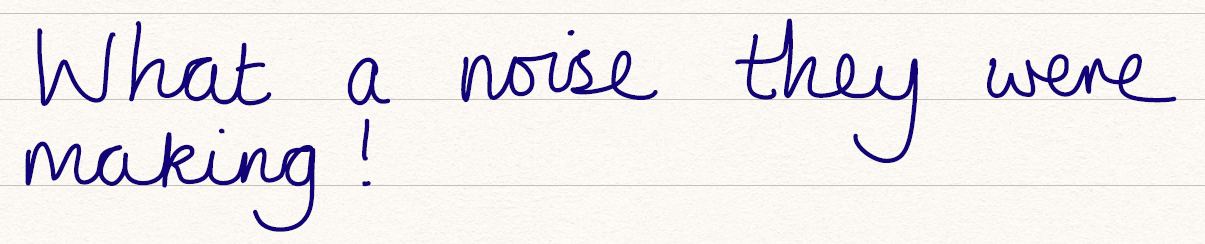 What a noise they were
making!